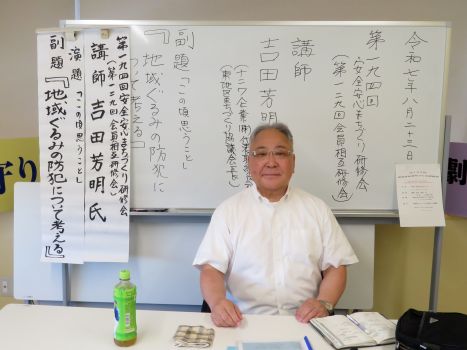 令和七年八月二十三日
第一九四回
安全安心まちづくり研修会
(第一二九回会員相互研修会)
講師
吉田芳明
副題「この頃思うこと」
『地域ぐるみの防犯に
ついて考える』
第一九四回安全安心まちづくり研修会
(第一二九回会員相互研修会)
講師 吉田芳明氏
演題 「この頃思うこと」
副題 『地域ぐるみの防犯について考える』
守り